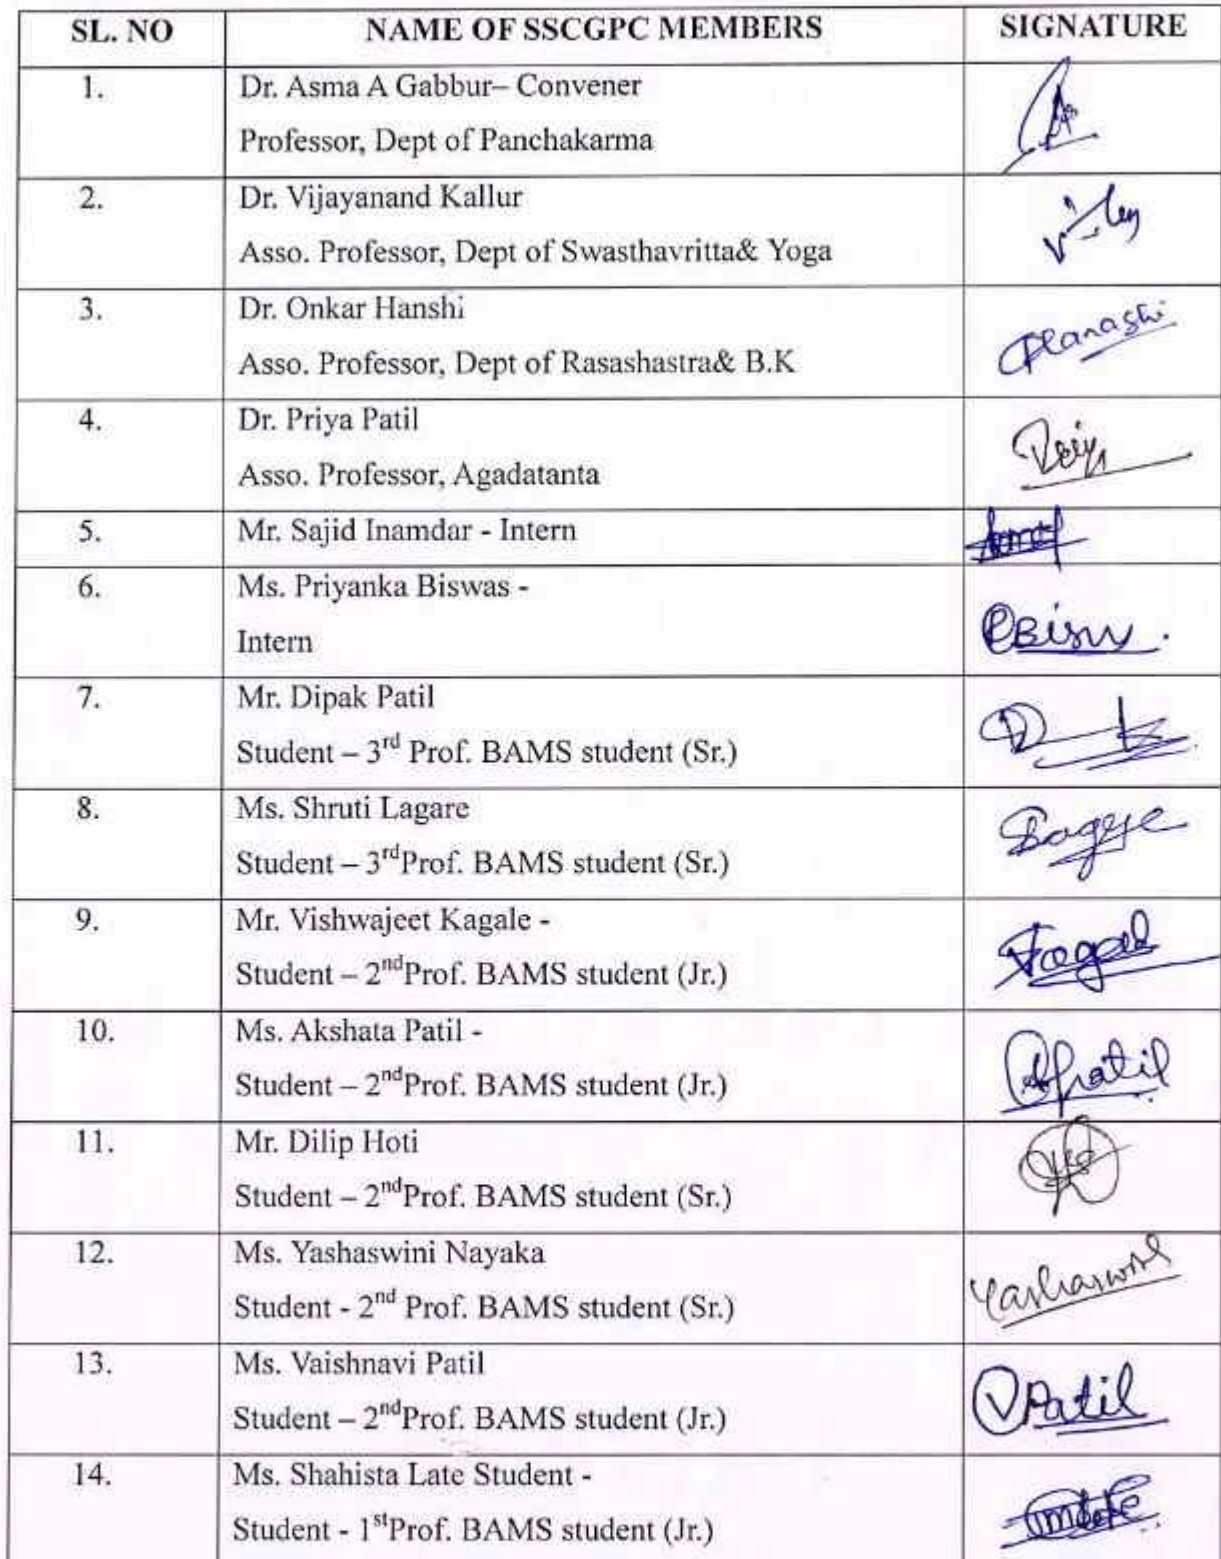 SL. NO NAME OF SSCGPC MEMBERS SIGNATURE
1. Dr. Asma A Gabbur– Convener
Professor, Dept of Panchakarma
2. Dr. Vijayanand Kallur
Asso. Professor, Dept of Swasthavritta& Yoga
3. Dr. Onkar Hanshi
Asso. Professor, Dept of Rasashastra& B.K
4. Dr. Priya Patil
Asso. Professor, Agadatanta
5. Mr. Sajid Inamdar - Intern
6. Ms. Priyanka Biswas -
Intern
7. Mr. Dipak Patil
Student – 3rd Prof. BAMS student (Sr.)
8. Ms. Shruti Lagare
Student – 3rdProf. BAMS student (Sr.)
9. Mr. Vishwajeet Kagale -
Student – 2ndProf. BAMS student (Jr.)
10. Ms. Akshata Patil -
Student – 2ndProf. BAMS student (Jr.)
APatil
11. Mr. Dilip Hoti
Student – 2ndProf. BAMS student (Sr.)
12. Ms. Yashaswini Nayaka
Student - 2nd Prof. BAMS student (Sr.)
13. Ms. Vaishnavi Patil
Student – 2ndProf. BAMS student (Jr.)
VPatil
14. Ms. Shahista Late Student -
Student - 1stProf. BAMS student (Jr.)